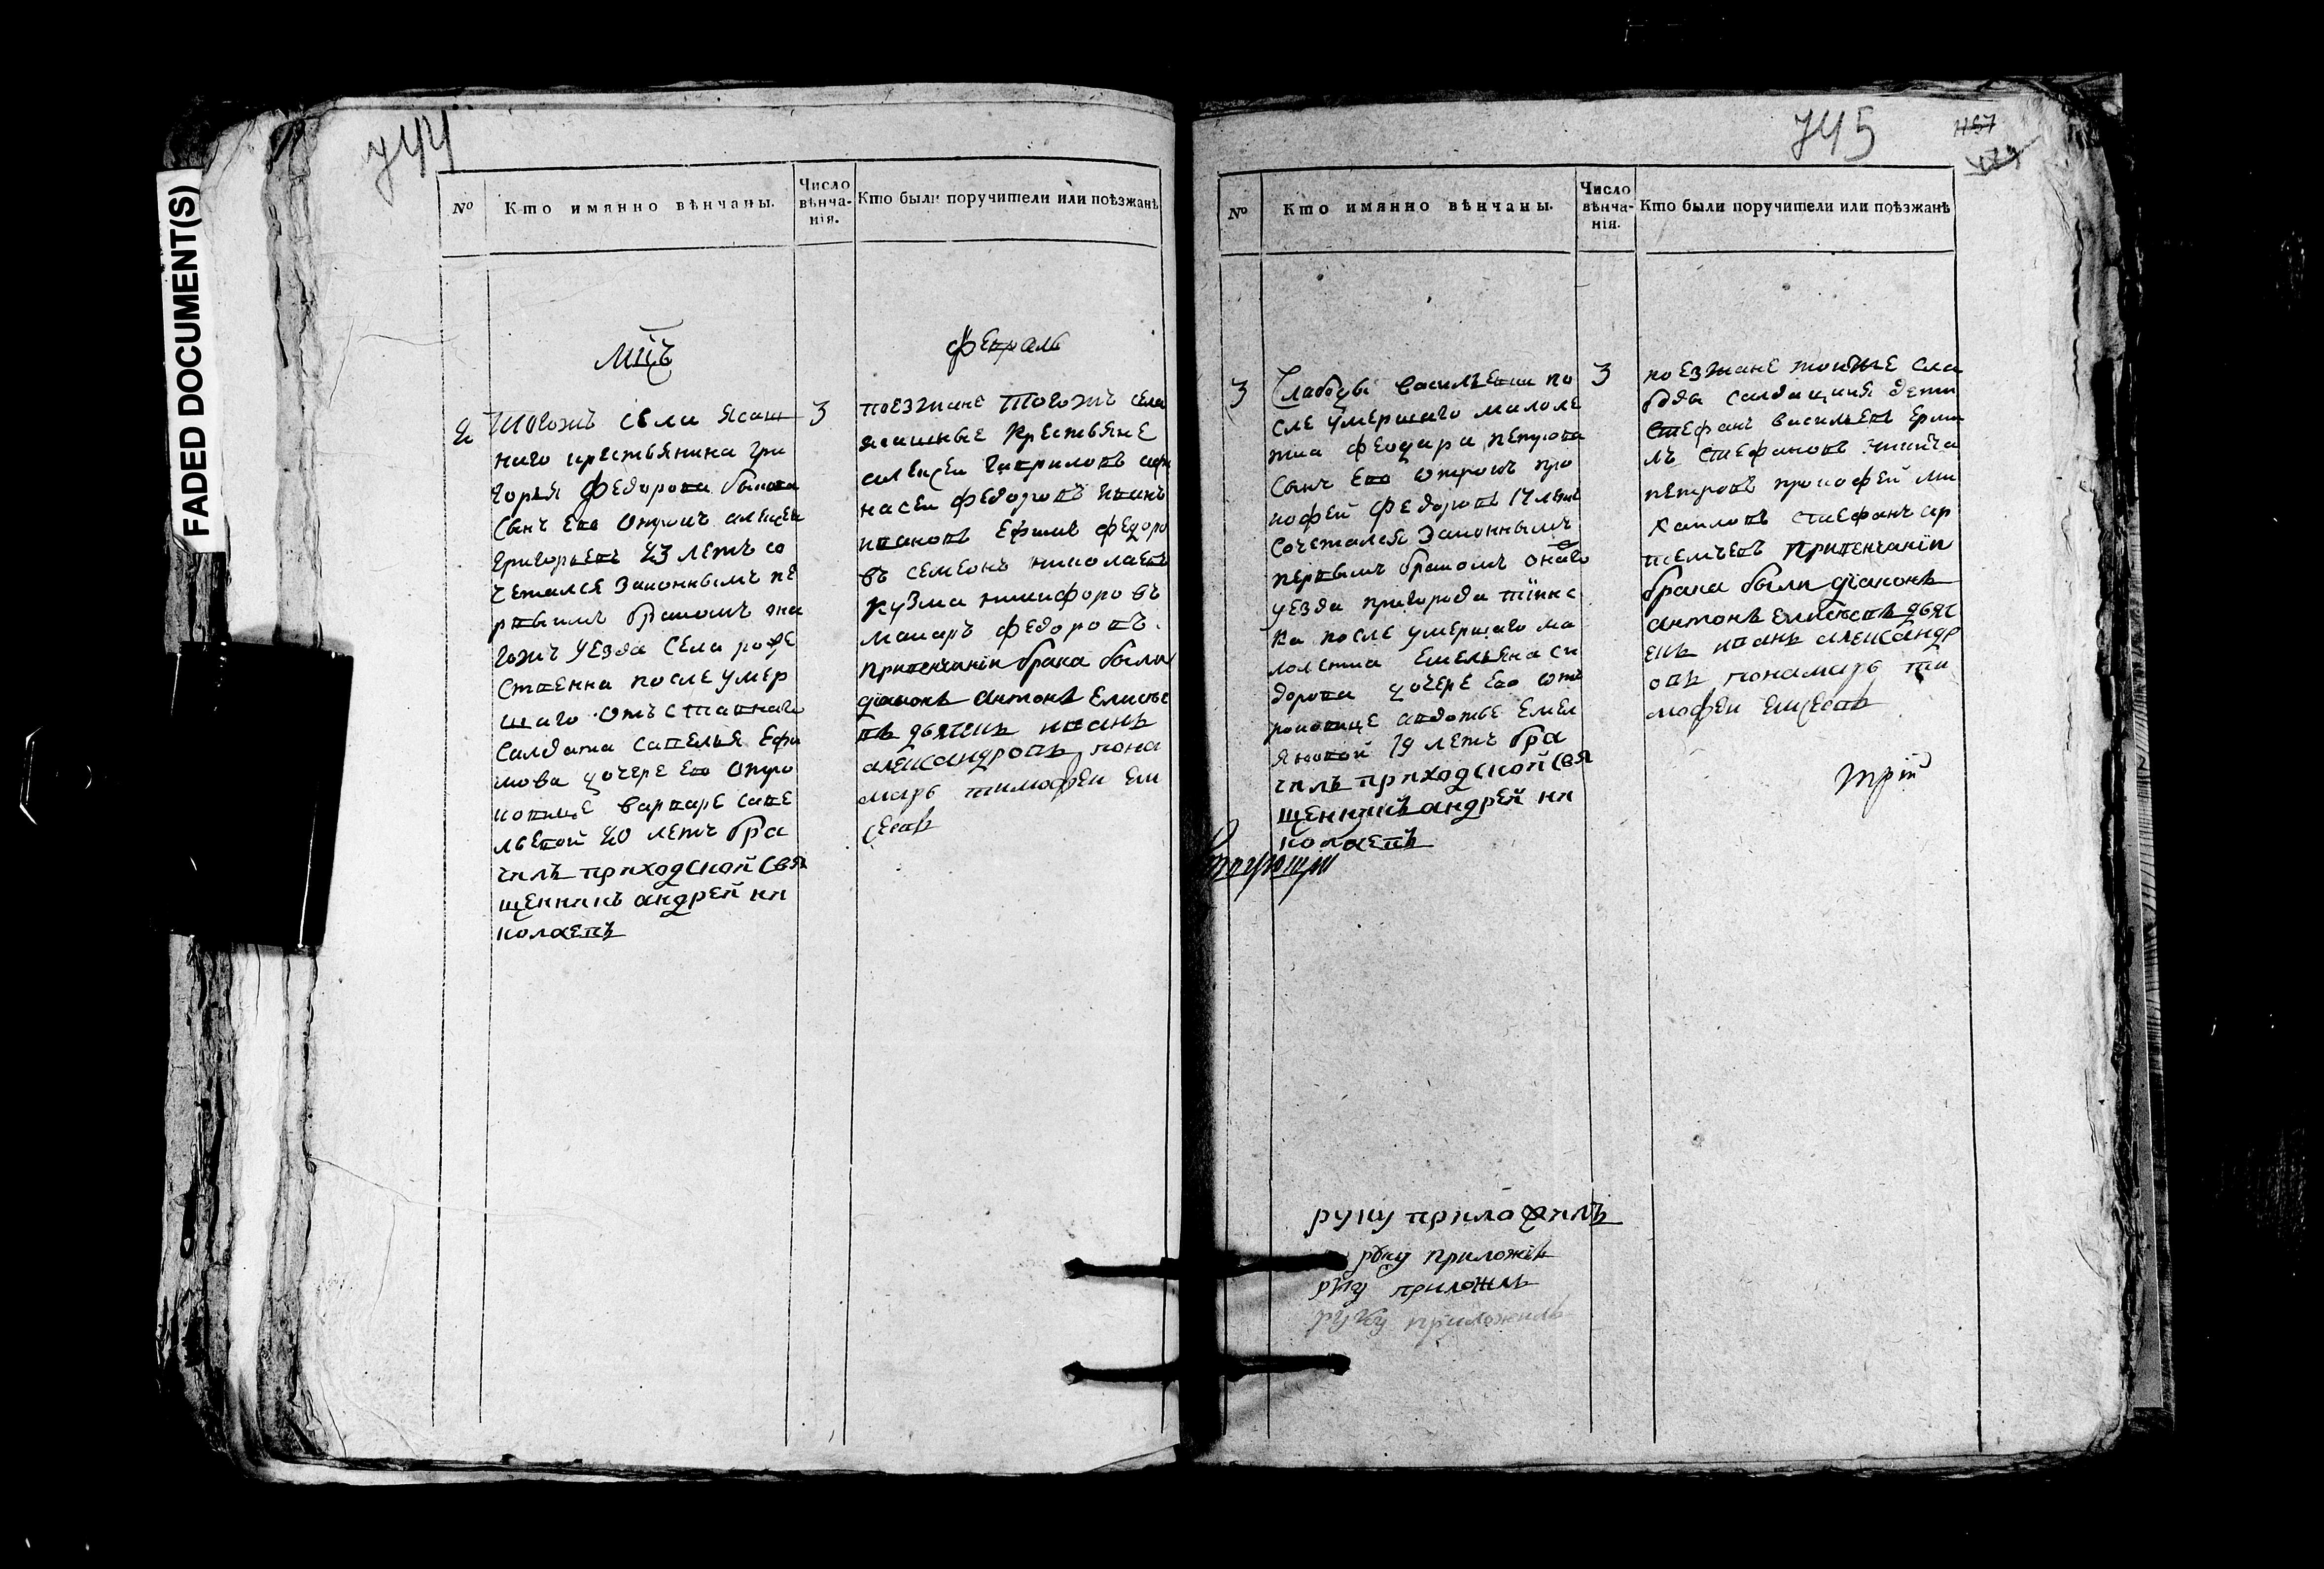 FADED DOCUMENT(S)
744
№
Кто имянно вѣнчаны.
Число вѣнча-нія.
Кто были поручители или поѣзжанѣ
Мцъ
февраль
2
Тогожъ села ясаш
наго крестьянина гри
горья федорова бывша
Сынъ ево отрокъ алексеи
григорьевъ 23 летъ со
четался законнымъ пе
рвымъ бракомъ она
гожъ уезда села рожде
ственна после умер
шаго отъставнаго
Салдата савелья ефи
мова дочере ево отро
ковице варваре саве
льевой 20 летъ бра
чилъ приходской свя
щенникъ андрей ни
колаевъ
3
поезжане тогожъ села
ясашные крестьяне
алексеи гавриловъ афа
насеи федоровъ иванъ
ивановъ ефимъ федоро
въ семеонъ николаевъ
кузма никифоровъ
макаръ федоровъ.
привенчании брака были
діаконъ антонъ елисѣе
въ дьячекъ иванъ
александровъ, пона
марь тимофеи ели
сеевъ
745
1157
№
Кто имянно вѣнчаны.
Число вѣнча-нія.
Кто были поручители или поѣзжанѣ
3
Слабоды васильевки по
сле умершаго малоле
тка феодара петрова
Сынъ ево отрокъ про
кофей федоровъ 17 летъ
сочетался законнымъ
первымъ бракомъ онаго
уезда пригорода тиинс
ка после умершаго ма
лолетка емельяна си
дорова дочере ево отъ
роковице авдотье емел
яновой 19 летъ бра
чилъ приходской свя
щенникъ андрей ни
колаевъ
3
поезжане тоиже сла
боды салдацкия дети
стефанъ васильевъ ерми
лъ стефановъ никита
петровъ прокофей ми
хаиловъ стефанъ ар
темьевъ привенчании
брака были діаконъ
антонъ елисѣевъ дьяч
екъ иванъ александр
овъ понамарь ти
мофеи елисеевъ
три
руку приложилъ
руку приложилъ
руку приложилъ
руку приложилъ